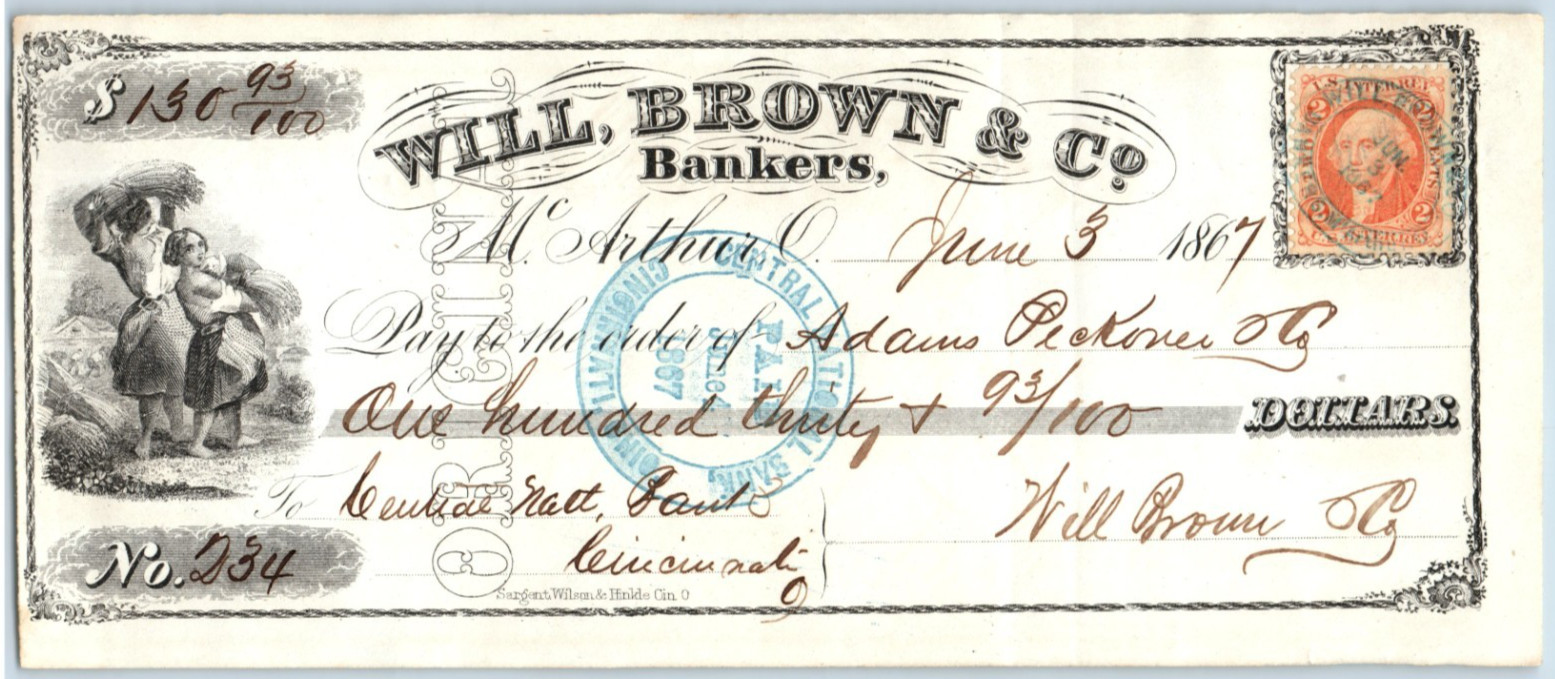 $ 130 93/100
WILL, BROWN & Co
Bankers,
Mc Arthur O. June 3 1867
Pay to the order of Adams Peckover & Co
One hundred thirty & 93/100 DOLLARS.
To Central Natl, Bank
Cincinnati
O
Will Brown & Co
No. 234
Sargent, Wilson & Hinkle Cin. O
CENTRAL NATIONAL BANK,
CINCINNATI
PAID
JUN 4
1867
U.S. INTER. REV.
2 2
2 2
WILL BROWN
JUN.
3